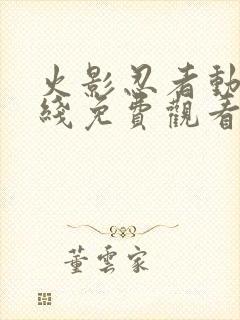 火影忍者動
綫免費觀看
董雲家